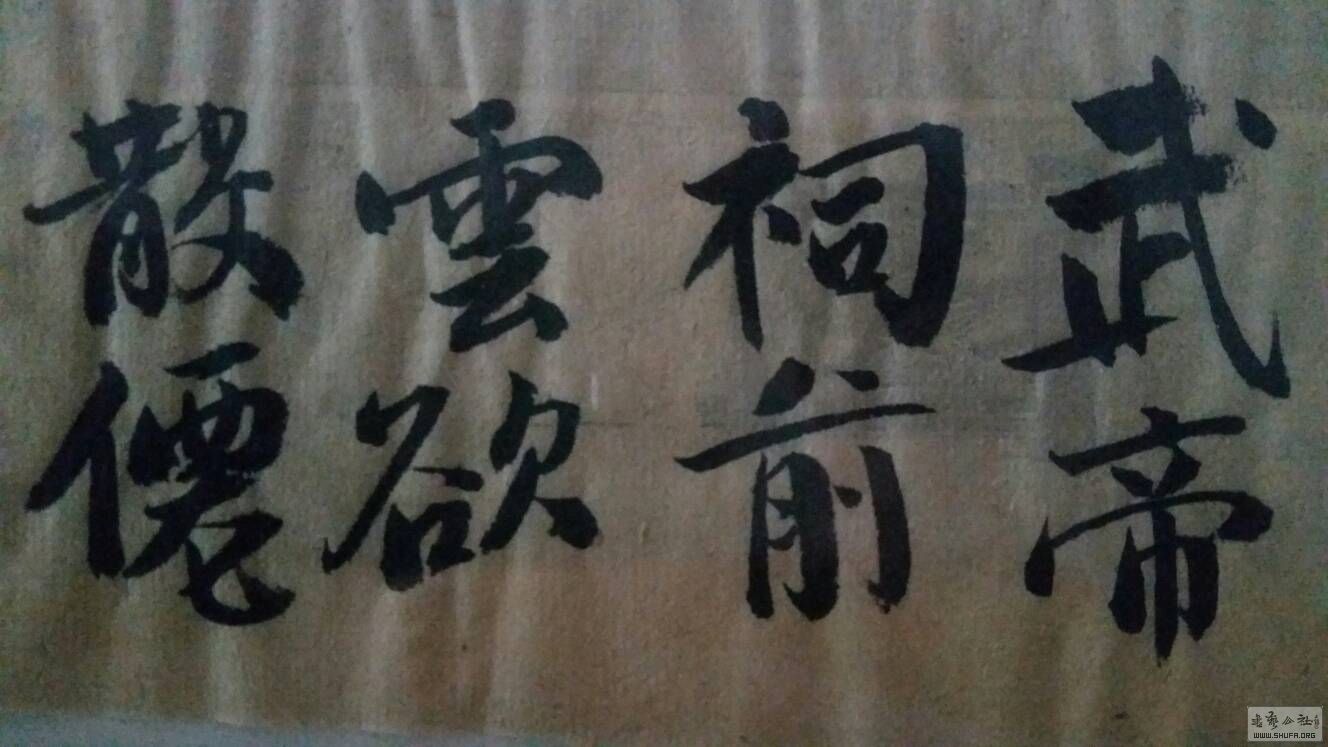 武帝
祠前
雲欲
散僊
書藝公社
WWW.SHUFA.ORG